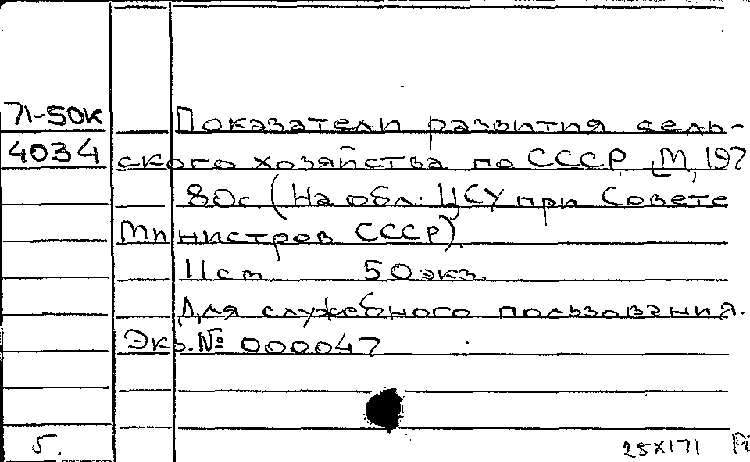 71-50к
4034
Показатели развития сель-
ского хозяйства по СССР. [М, 197
80с. (На обл: ЦСУ при Совете
Министров СССР).
11см 50экз.
Для служебного пользования.
Экз. № 000047
5.
25X171